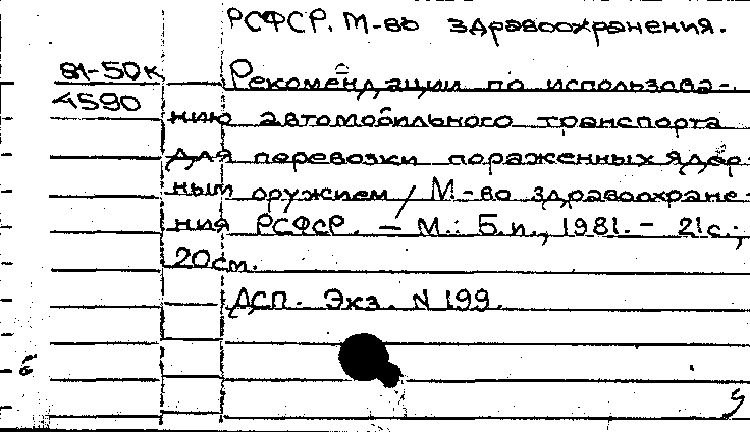 РСФСР. М-во здравоохранения.
81-50к Рекомендации по использова-
4590
нию автомобильного транспорта
для перевозки пораженных ядер-
ным оружием / М-во здравоохране-
ния РСФСР. – М.: Б.и., 1981. – 21с.;
20см.
ДСП. Экз. N 199.
б